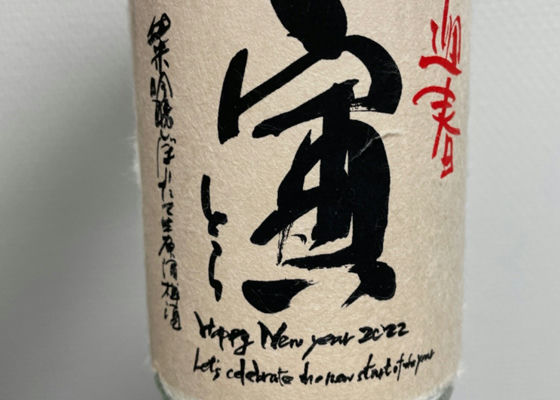 迎春
寅
とら
純米吟醸しぼりたて生原酒
Happy New year 2022
Let's celebrate the new start of the year